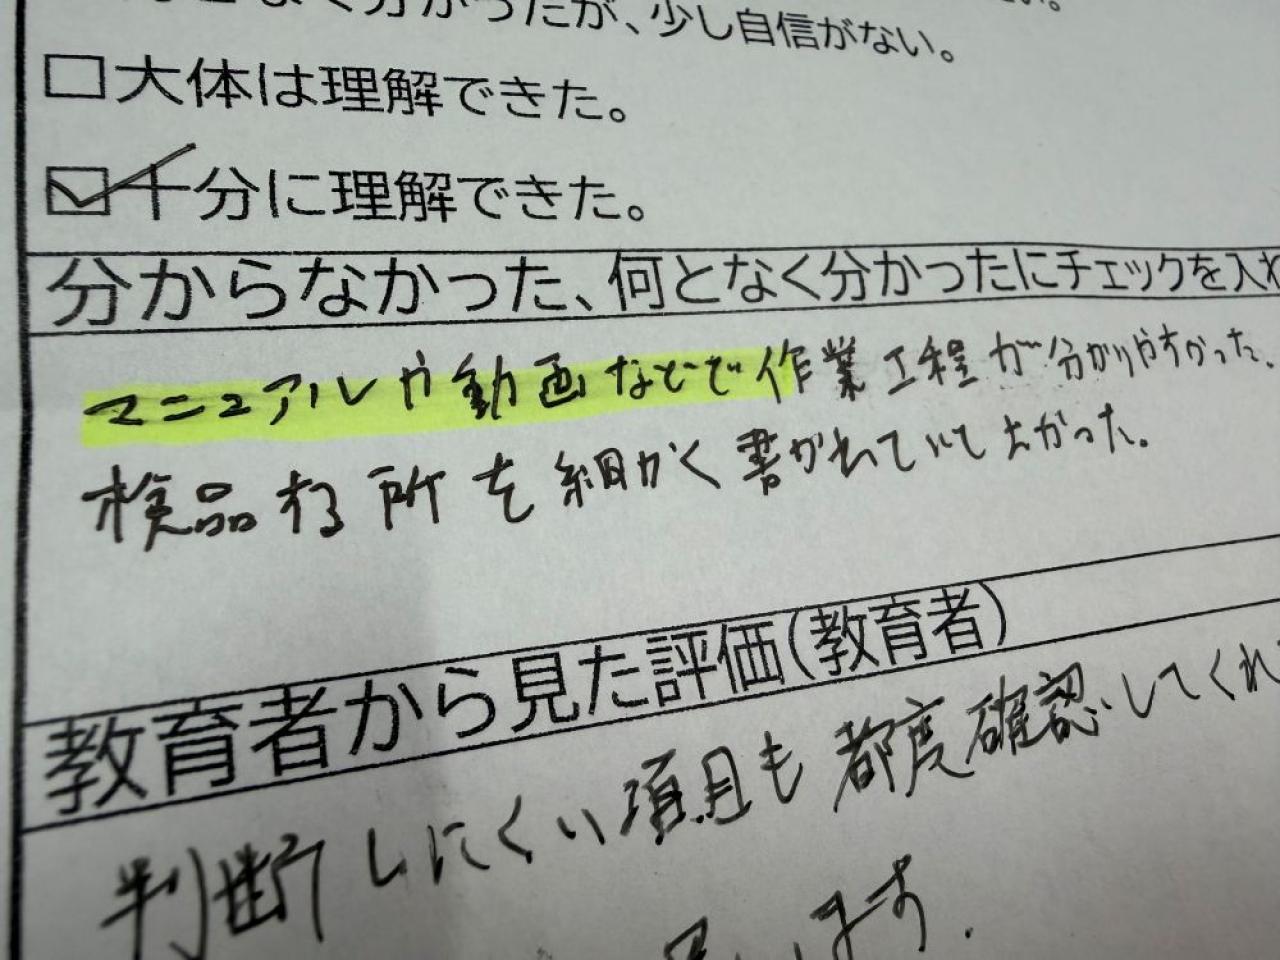 なく分かったが、少し自信がない。
□大体は理解できた。
☑十分に理解できた。
分からなかった、何となく分かったにチェックを入れ
マニュアルや動画などで作業工程が分かりやすかった。
検品する所を細かく書かれていてよかった。
教育者から見た評価(教育者)
判断しにくい項目も都度確認してくれ
ます。